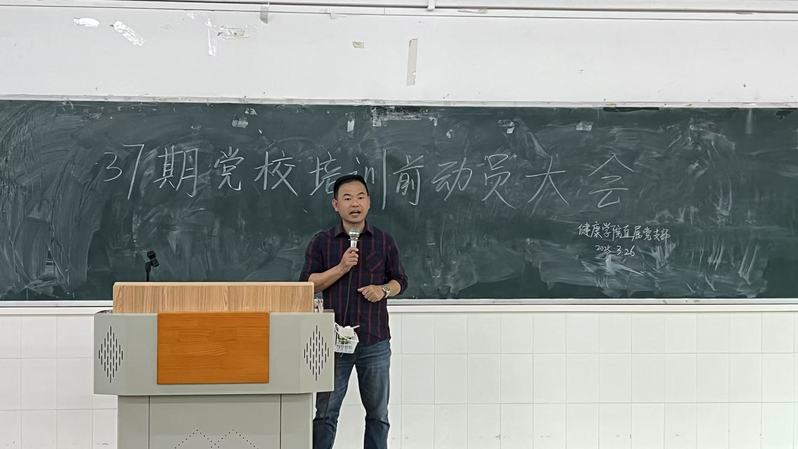 37期党校培训前动员大会
健康学院直属党支部
2025.3.26